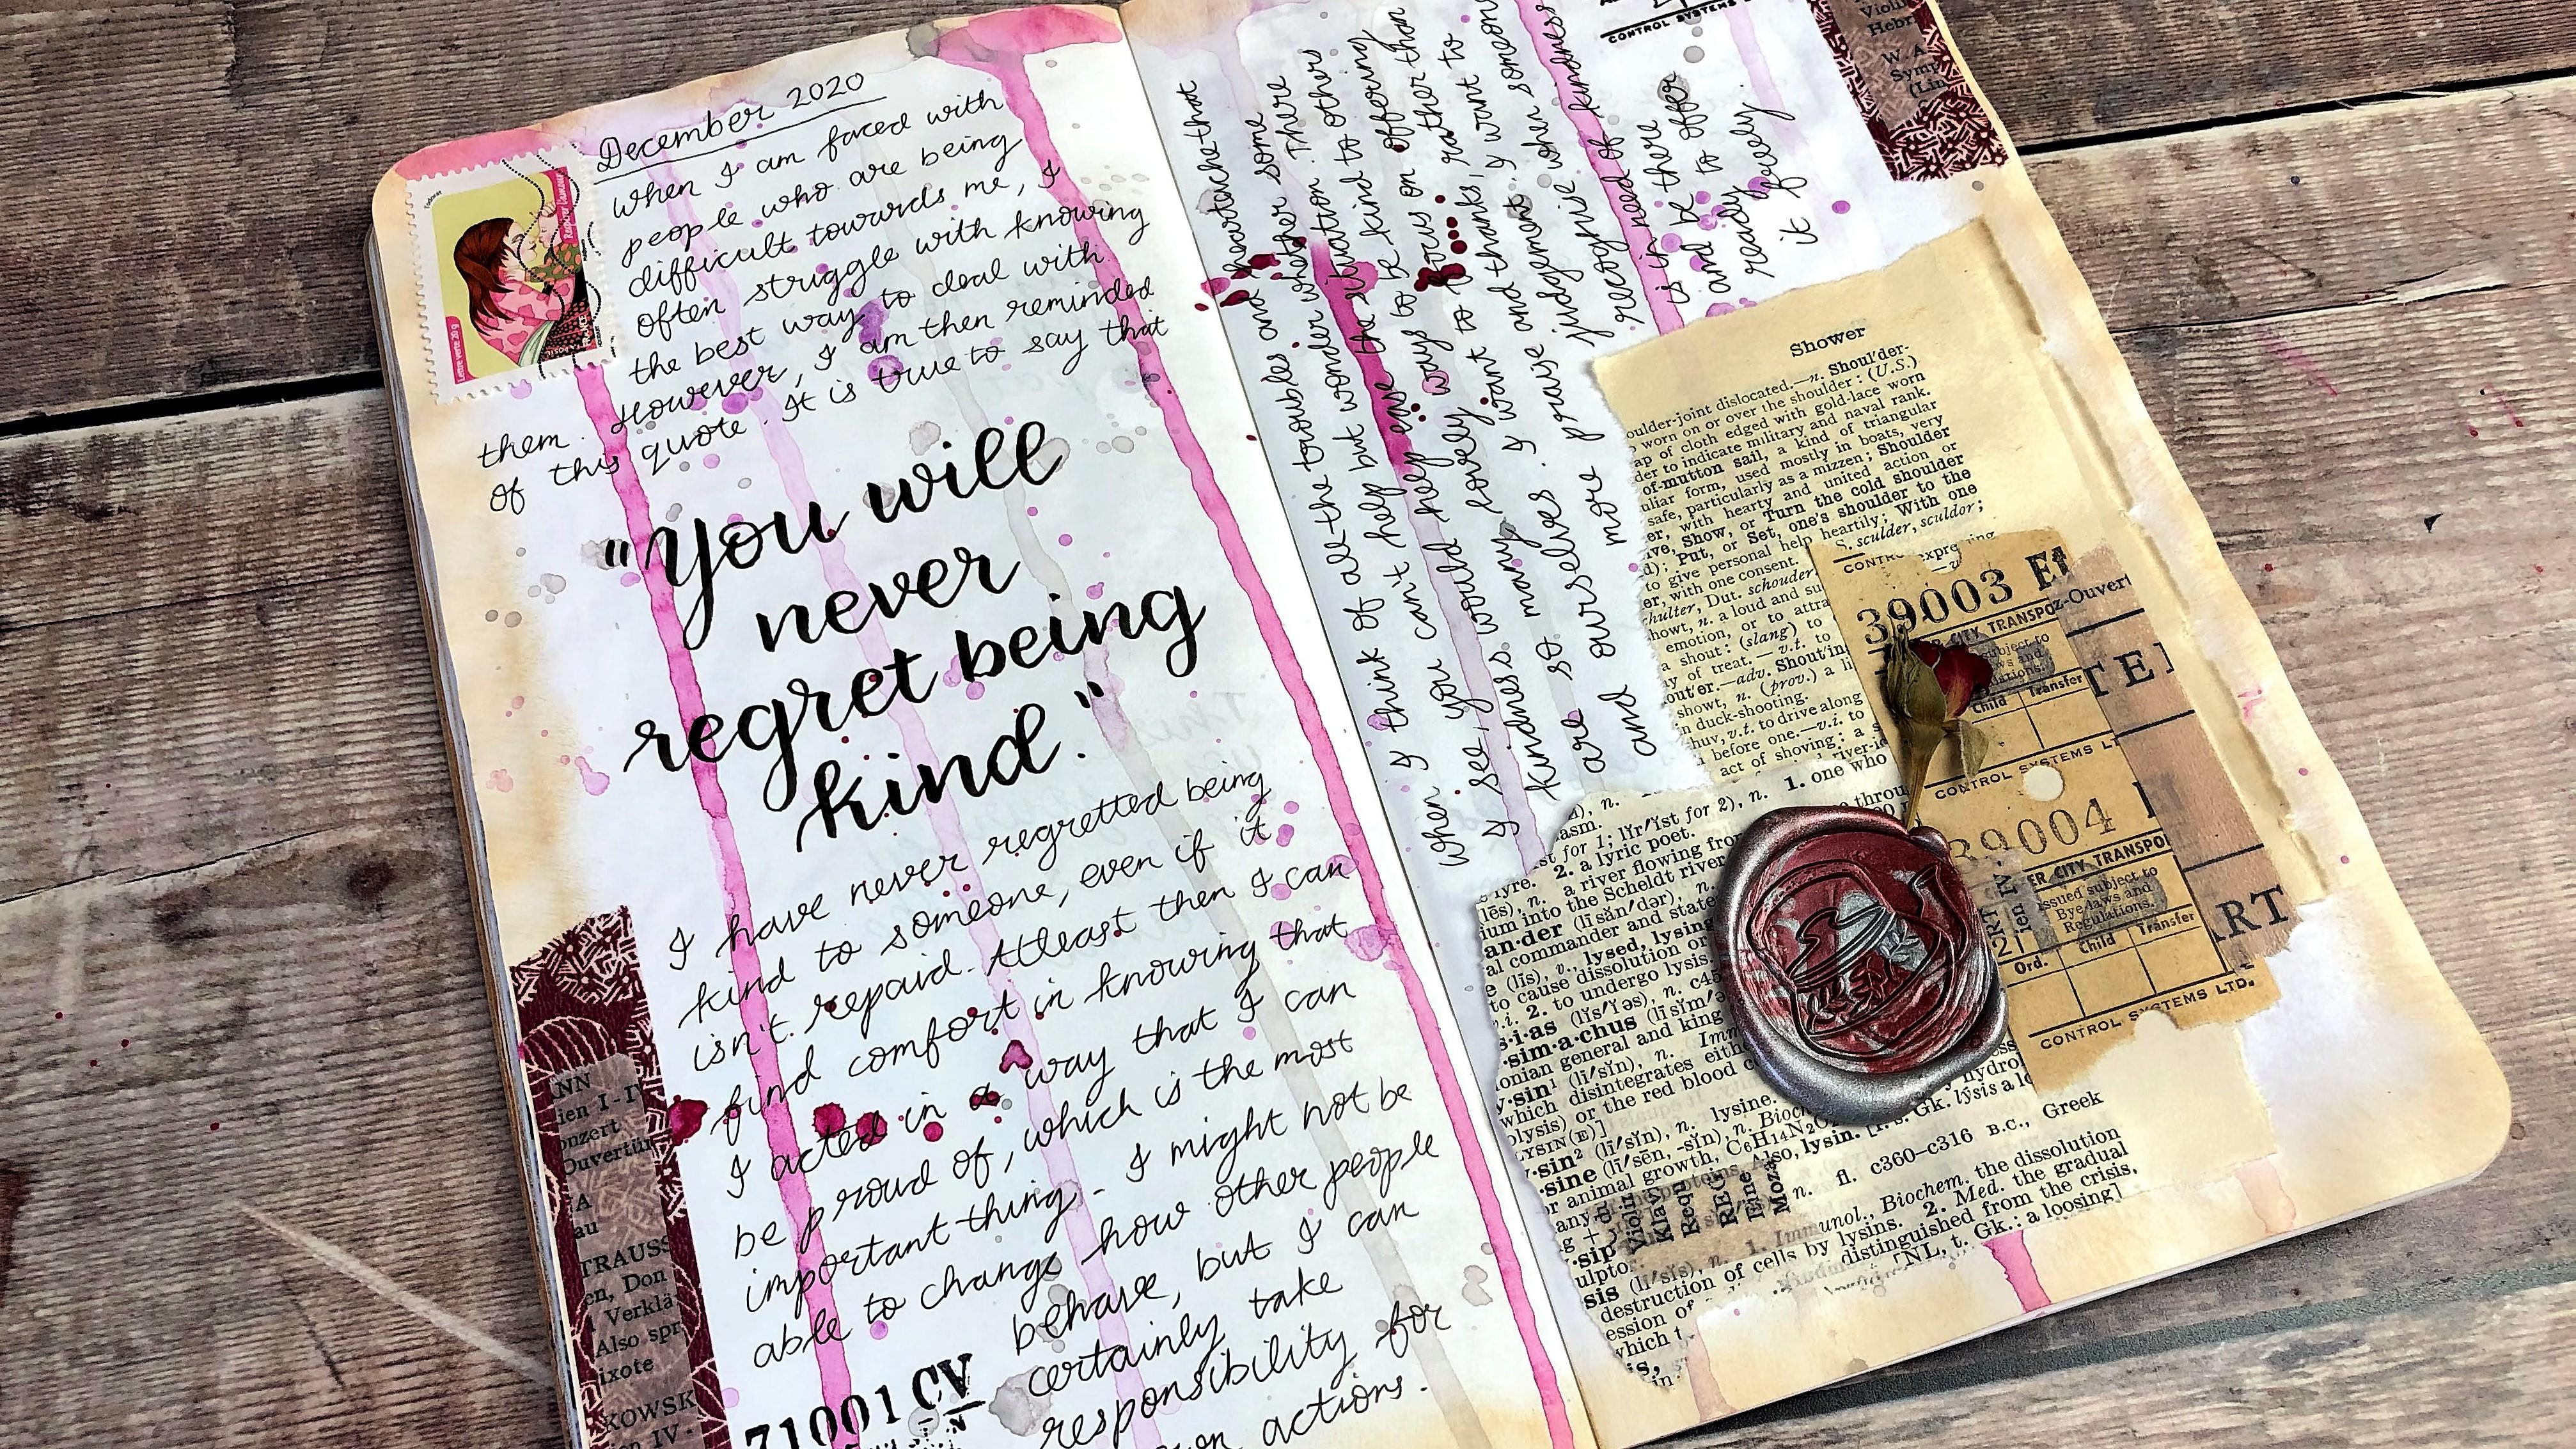 December 2020
when I am faced with
people who are being
difficult towards me, I
often struggle with knowing
the best way to deal with
them. However, I am then reminded
of this quote. It is true to say that
"You will
never
regret being
kind."
I have never regretted being
kind to someone, even if it
isn't repaid. Atleast then I can
find comfort in knowing that
I acted in a way that I can
be proud of, which is the most
important thing. I might not be
able to change how other people
behave, but I can
certainly take
responsibility for
own actions.
71001 CV
Respirer l'amour
Lettre verte 20 g
NN
ien I-IV
onzert
Ouvertür
A
au
TRAUSS
en, Don
Verklä
Also spr
ixote
KOWSK
IV
When I think of all the troubles and heartache that
I see, you can't help but wonder whether some
kindness would help ease the situation. There
are so many lovely ways to be kind to others
and ourselves. I want to focus on offering
more praise and thanks, rather than
judgement. I want to
recognise when someone
is in need of kindness
and be there
ready to offer
it freely.
CONTROL SYSTEMS
Violin
Hebr
W. A.
Symp
(Lin
Shower
oulder-joint dislocated.—n. Shoul'der-
worn on or over the shoulder: (U.S.)
ap of cloth edged with gold-lace worn
der to indicate military and naval rank.
of-mutton sail, a kind of triangular
uliar form, used mostly in boats, very
safe, particularly as a mizzen; Shoulder
er, with hearty and united action or
ive, Show, or Turn the cold shoulder
d); Put, or Set, one's shoulder to the
to give personal help heartily; With one
er, with one consent. S. sculder, sculdor;
hulter, Dut. schouder,
howt, n. a loud and su
emotion, or to attra
a shout: (slang) to
y of treat.—v.t. to
out'er.—adv. Shout'in
showt, n. (prov.) a li
n duck-shooting.
huv, v.t. to drive along
before one.—v.i. to
act of shoving: a s
39003
CITY TRANSPO
z-Ouvert
subject to
ws and
ations.
Child Transfer
TE
CONTROL SYSTEMS LT
39004
ER CITY TRANSPO
issued subject to
Bye-laws and
Regulations.
Ord. Child Transfer
ART
CONTROL SYSTEMS LTD.
n. 1. one who
st for 1; lĭr′ĭst for 2), n.
lyre. 2. a lyric poet.
a river flowing fro
into the Scheldt river
an·der (lī săn′dər), n.
al commander and state
e (līs), v., lysed, lysing
to cause dissolution or
v.i. 2. to undergo lysis.
s·i·as (lĭs′ĭ əs), n. c45
·sim·a·chus (lī sĭm′ə
onian general and king
·sin¹ (lī′sĭn), n. Imm
which disintegrates eith
olysis) or the red blood c
LYSIN(E)]
·sin² (lī′sĭn), n. lysine.
·sine (lī′sēn, -sĭn), n. Bioc
or animal growth, C₆H₁₄N₂O
Also, lysin.
Gk. lýsis a lo
n. fl. c360–c316 B.C., Greek
Violin
Klav
Requ
Moza
sis (lī′sĭs), n. 1. Immunol., Biochem. the dissolution
destruction of cells by lysins. 2. Med. the gradual
ession of distinguished from the crisis,
which t [NL, t. Gk.: a loosing]